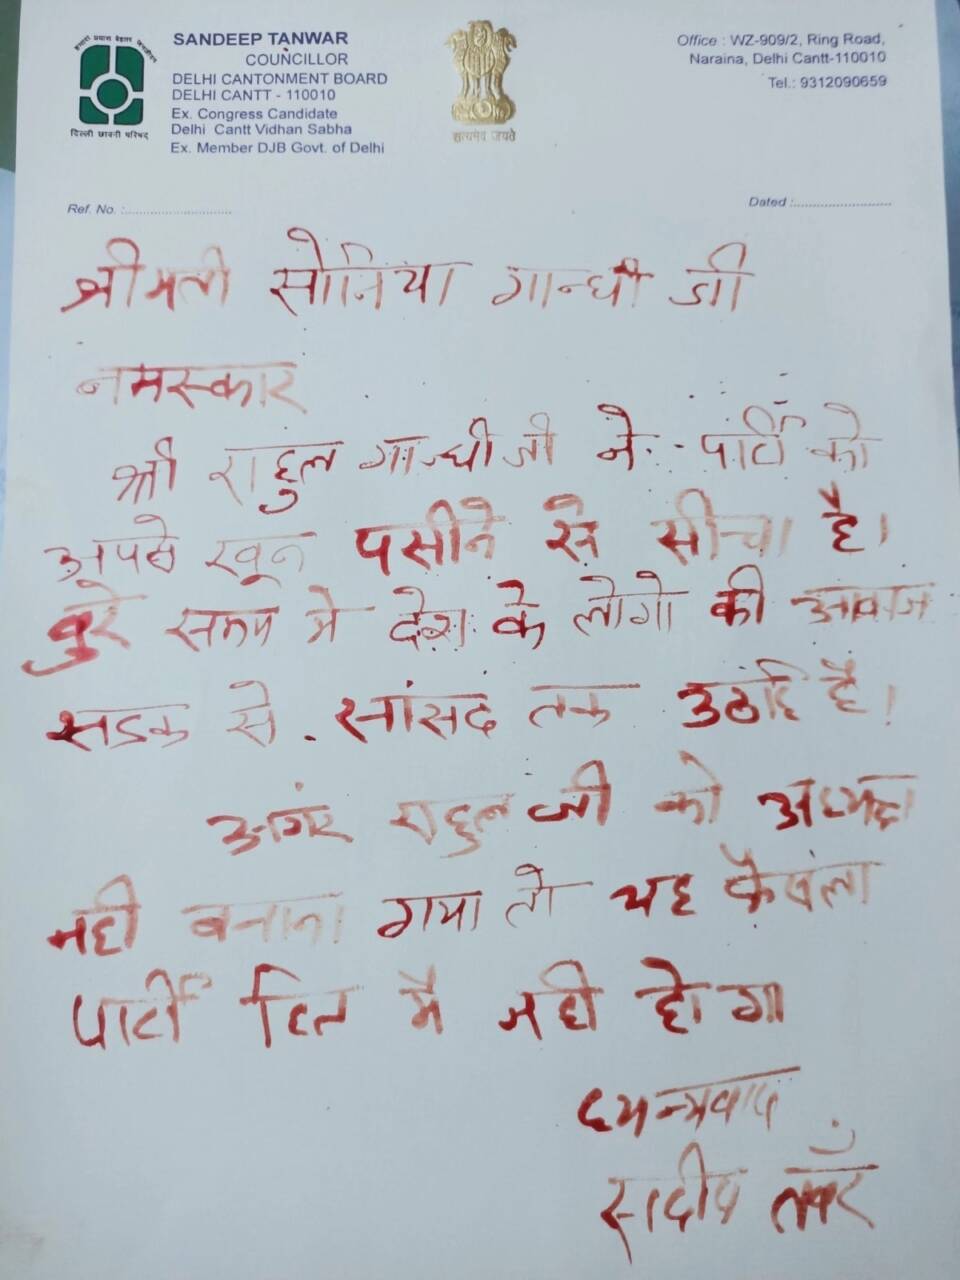 हमारा प्रयास बेहतर
दिल्ली छावनी परिषद्
SANDEEP TANWAR
COUNCILLOR
DELHI CANTONMENT BOARD
DELHI CANTT - 110010
Ex. Congress Candidate
Delhi Cantt Vidhan Sabha
Ex. Member DJB Govt. of Delhi
सत्यमेव जयते
Office : WZ-909/2, Ring Road,
Naraina, Delhi Cantt-110010
Tel.: 9312090659
Ref. No. :............................
Dated :........................
श्रीमती सोनिया गान्धी जी
नमस्कार
श्री राहुल गान्धी जी ने पार्टी को
अपने खून पसीने से सीचा है।
बुरे समय मे देश के लोगो की आवाज
सडक से सांसद तक उठाई है।
अगर राहुल जी को अध्यक्ष
नही बनाया गया तो यह फैसला
पार्टी हित मै नही होगा
धन्यवाद
सदीप तवँर